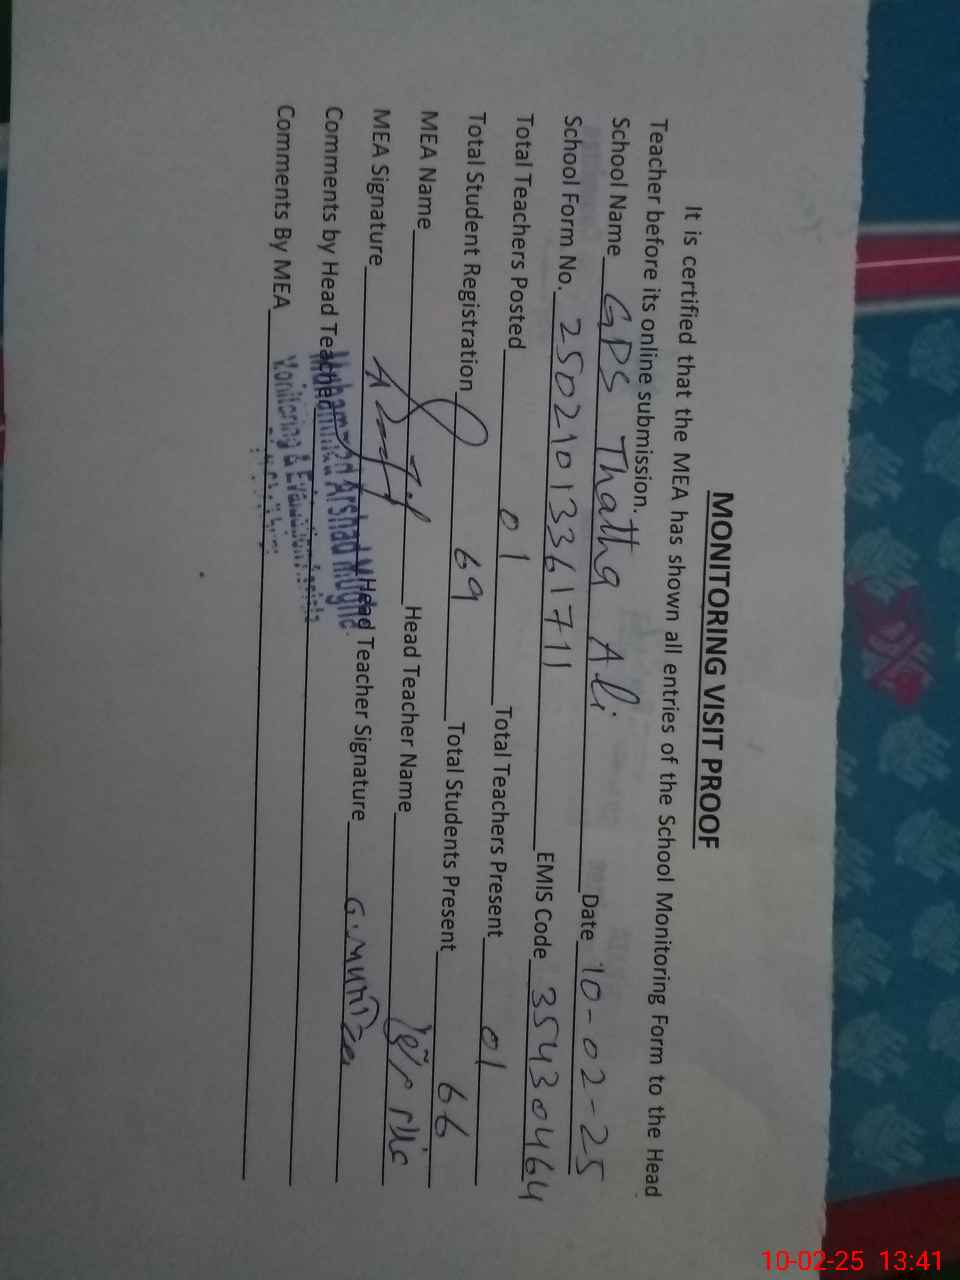 MONITORING VISIT PROOF
It is certified that the MEA has shown all entries of the School Monitoring Form to the Head
Teacher before its online submission.
School Name GPS Thatha Ali Date 10-02-25
School Form No. 25021013361711 EMIS Code 35430464
Total Teachers Posted 01 Total Teachers Present 01
Total Student Registration 69 Total Students Present 66
MEA Name Head Teacher Name
MEA Signature Head Teacher Signature G. Mumtaz
Comments by Head Teacher
Muhammad Arshad Mughal
Comments By MEA
Monitoring & Evaluation Assistant
10-02-25 13:41